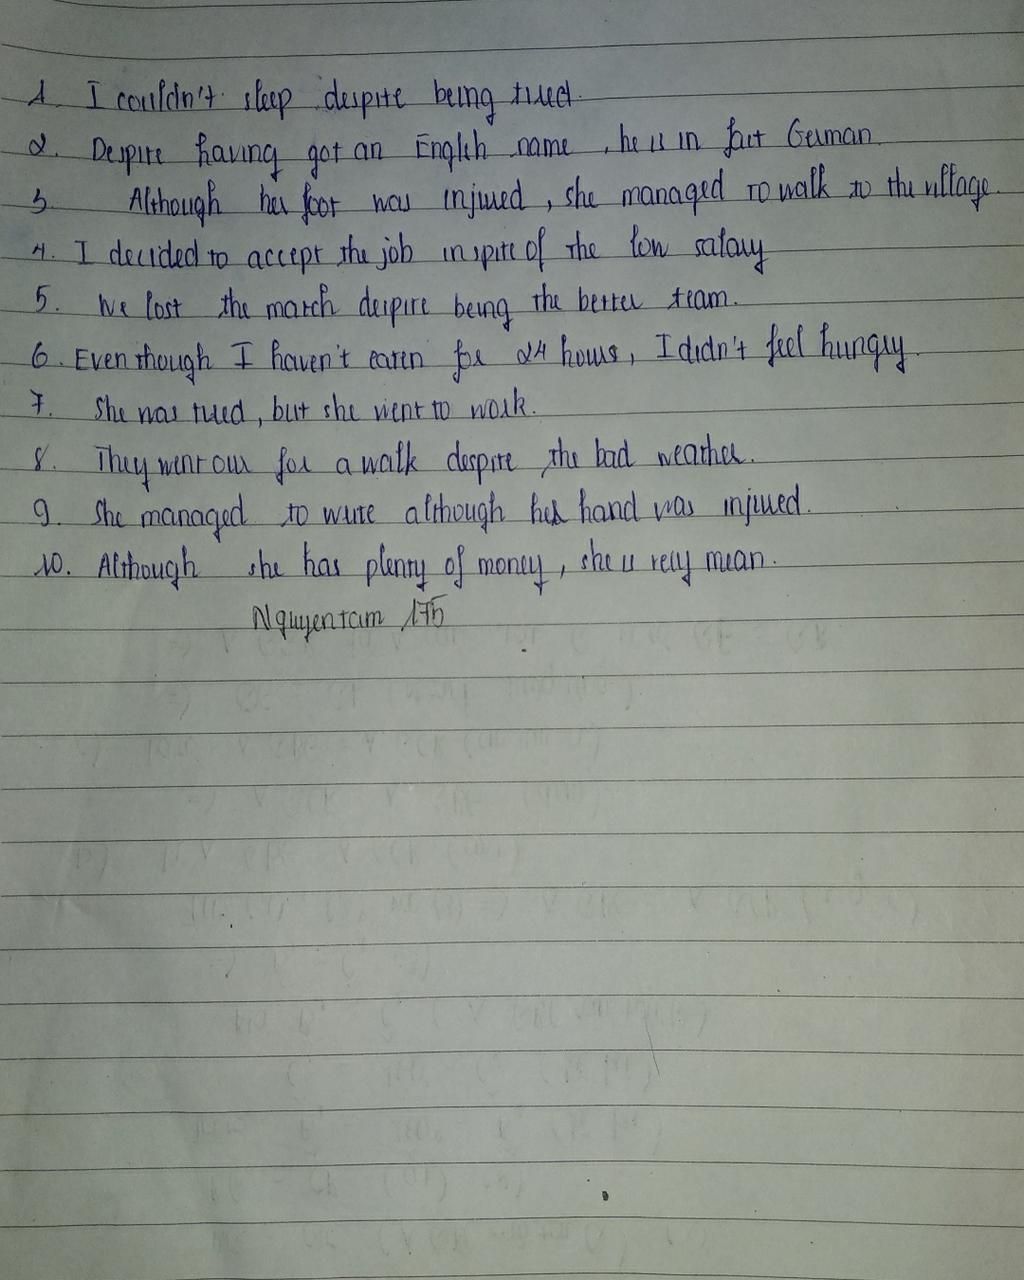 1. I couldn't sleep despite being tired.
2. Despite having got an English name, he is in fact German.
3. Although her foot was injured, she managed to walk to the village.
4. I decided to accept the job in spite of the low salary
5. We lost the match despite being the better team.
6. Even though I haven't eaten for 24 hours, I didn't feel hungry.
7. She was tired, but she went to work.
8. They went out for a walk despite the bad weather.
9. She managed to write although her hand was injured.
10. Although she has plenty of money, she is very mean.
Nguyentam 175